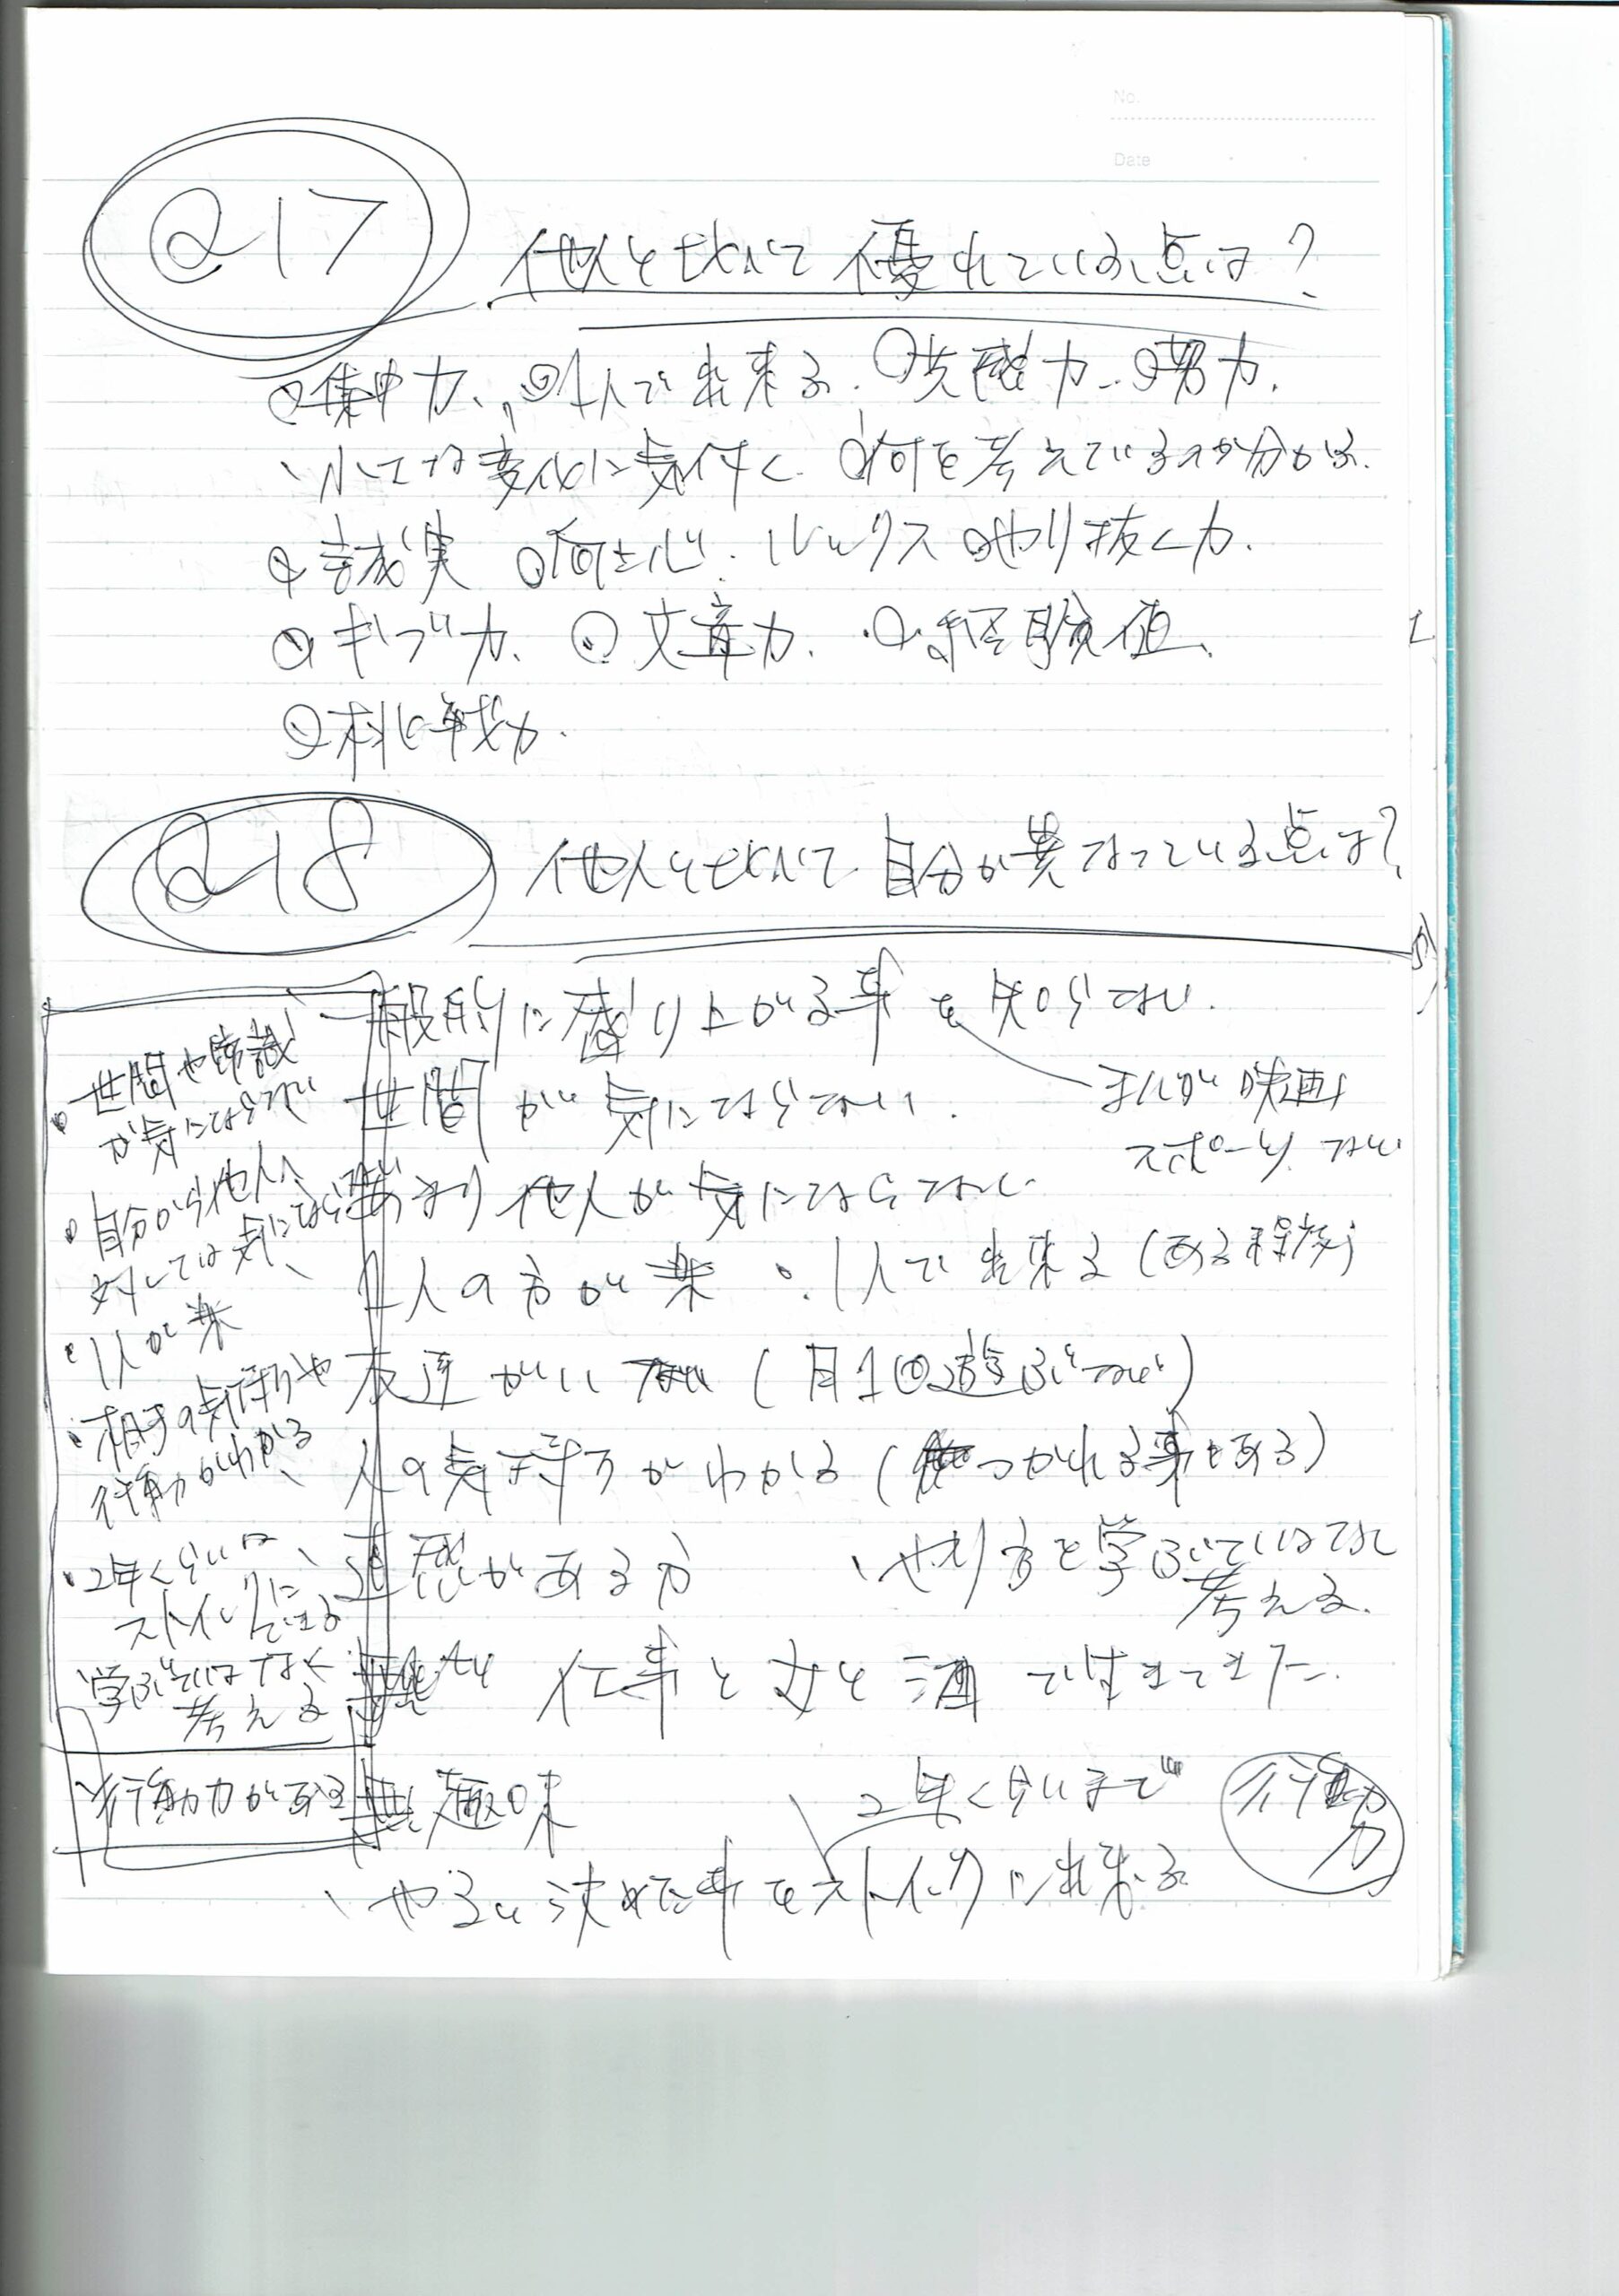 No.
Date
Q17
他人と比べて優れている点は?
集中力、1人で出来る、共感力、努力、
小さな変化に気付く 何を考えているのか分かる、
誠実 向上心 ルックス やり抜く力、
ギブ力、文章力、経験値、
Q18
他人と比べて自分が異なっている点は?
一般的に盛り上がる事を知らない、
まんが 映画
スポーツ ない
世間が気にならない、
あまり他人が気にならない
1人の方が楽 ・1人で出来る(ある程度)
友達がいない(月1回遊ぶ
人の気持ちがわかる(つかれる事もある)
直感がある方
、やり方を学ぶではなく
考える、
仕事と女と酒で生きてきた、
無趣味
2年くらいまで
行動力
、やると決めた事をストイックに出来る
・世間や常識
が気にならない
・自分から他人に
対しては気にならない
・1人が楽
・相手の気持ちや
行動がわかる
・2年くらいは
ストイックに
できる
・学ぶではなく
考える
・行動力がある